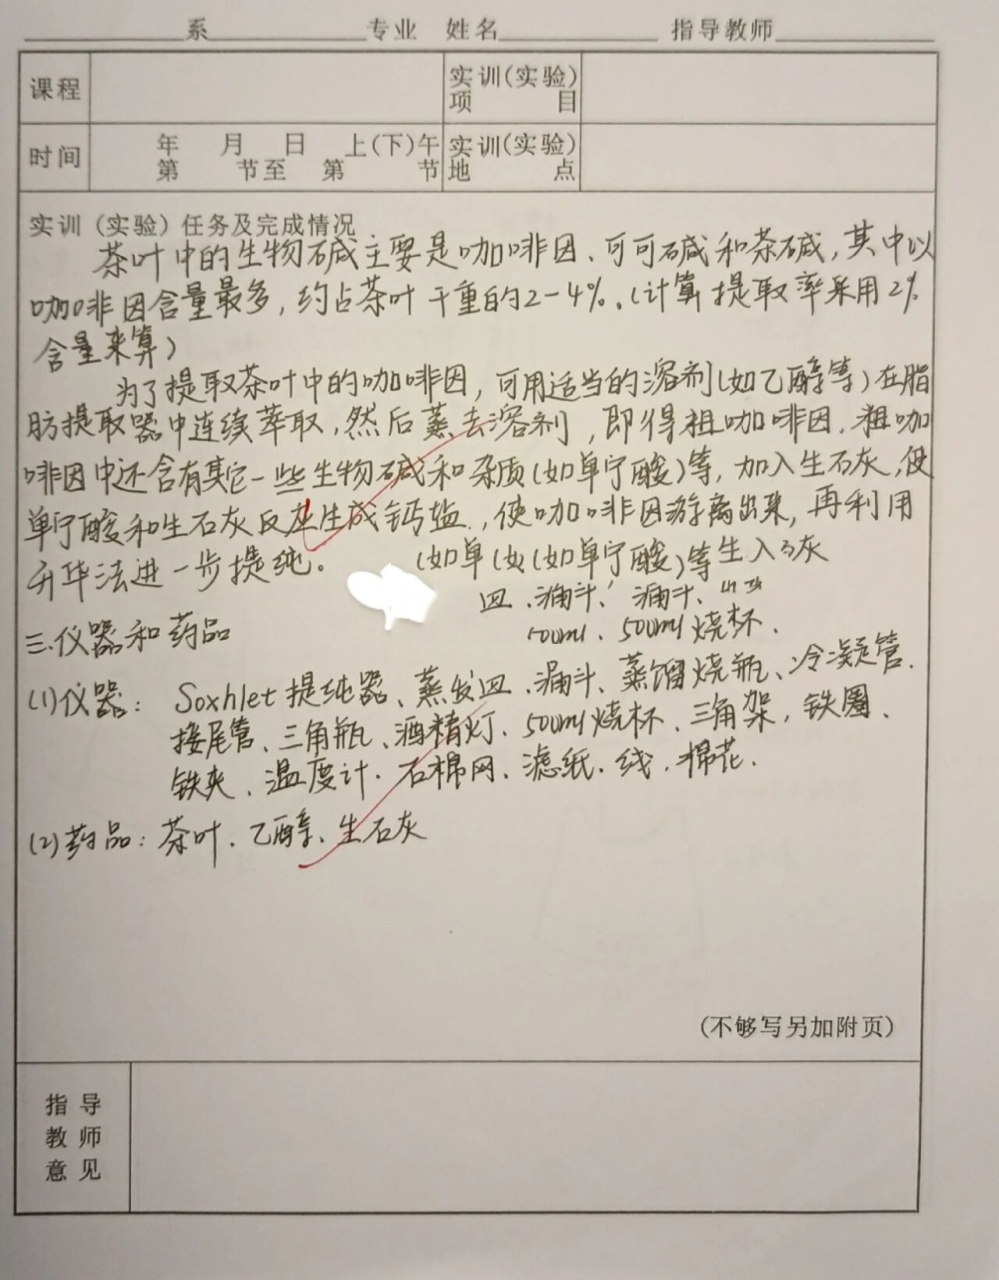 系 专业 姓名 指导教师
课程 实训(实验)项目
时间 年 月 日 上(下)午 第 节至 第 节 实训(实验)地点
实训（实验）任务及完成情况
茶叶中的生物碱主要是咖啡因、可可碱和茶碱,其中以
咖啡因含量最多,约占茶叶干重的2-4%.(计算提取率采用2%
含量来算)
为了提取茶叶中的咖啡因,可用适当的溶剂(如乙醇等)在脂
肪提取器中连续萃取,然后蒸去溶剂,即得粗咖啡因.粗咖
啡因中还含有其它一些生物碱和杂质(如单宁酸)等,加入生石灰,使
单宁酸和生石灰反应生成钙盐.,使咖啡因游离出来,再利用
升华法进一步提纯。
(如单(如(如单宁酸)等生入
灰
皿.漏斗、漏斗、
500ml、500ml烧杯.
三.仪器和药品
(1)仪器: Soxhlet提纯器、蒸发皿.漏斗、蒸馏烧瓶、冷凝管.
接尾管、三角瓶、酒精灯、500ml烧杯、三角架,铁圈、
铁夹、温度计.石棉网、滤纸.线.棉花.
(2)药品:茶叶.乙醇、生石灰
(不够写另加附页)
指导
教师
意见